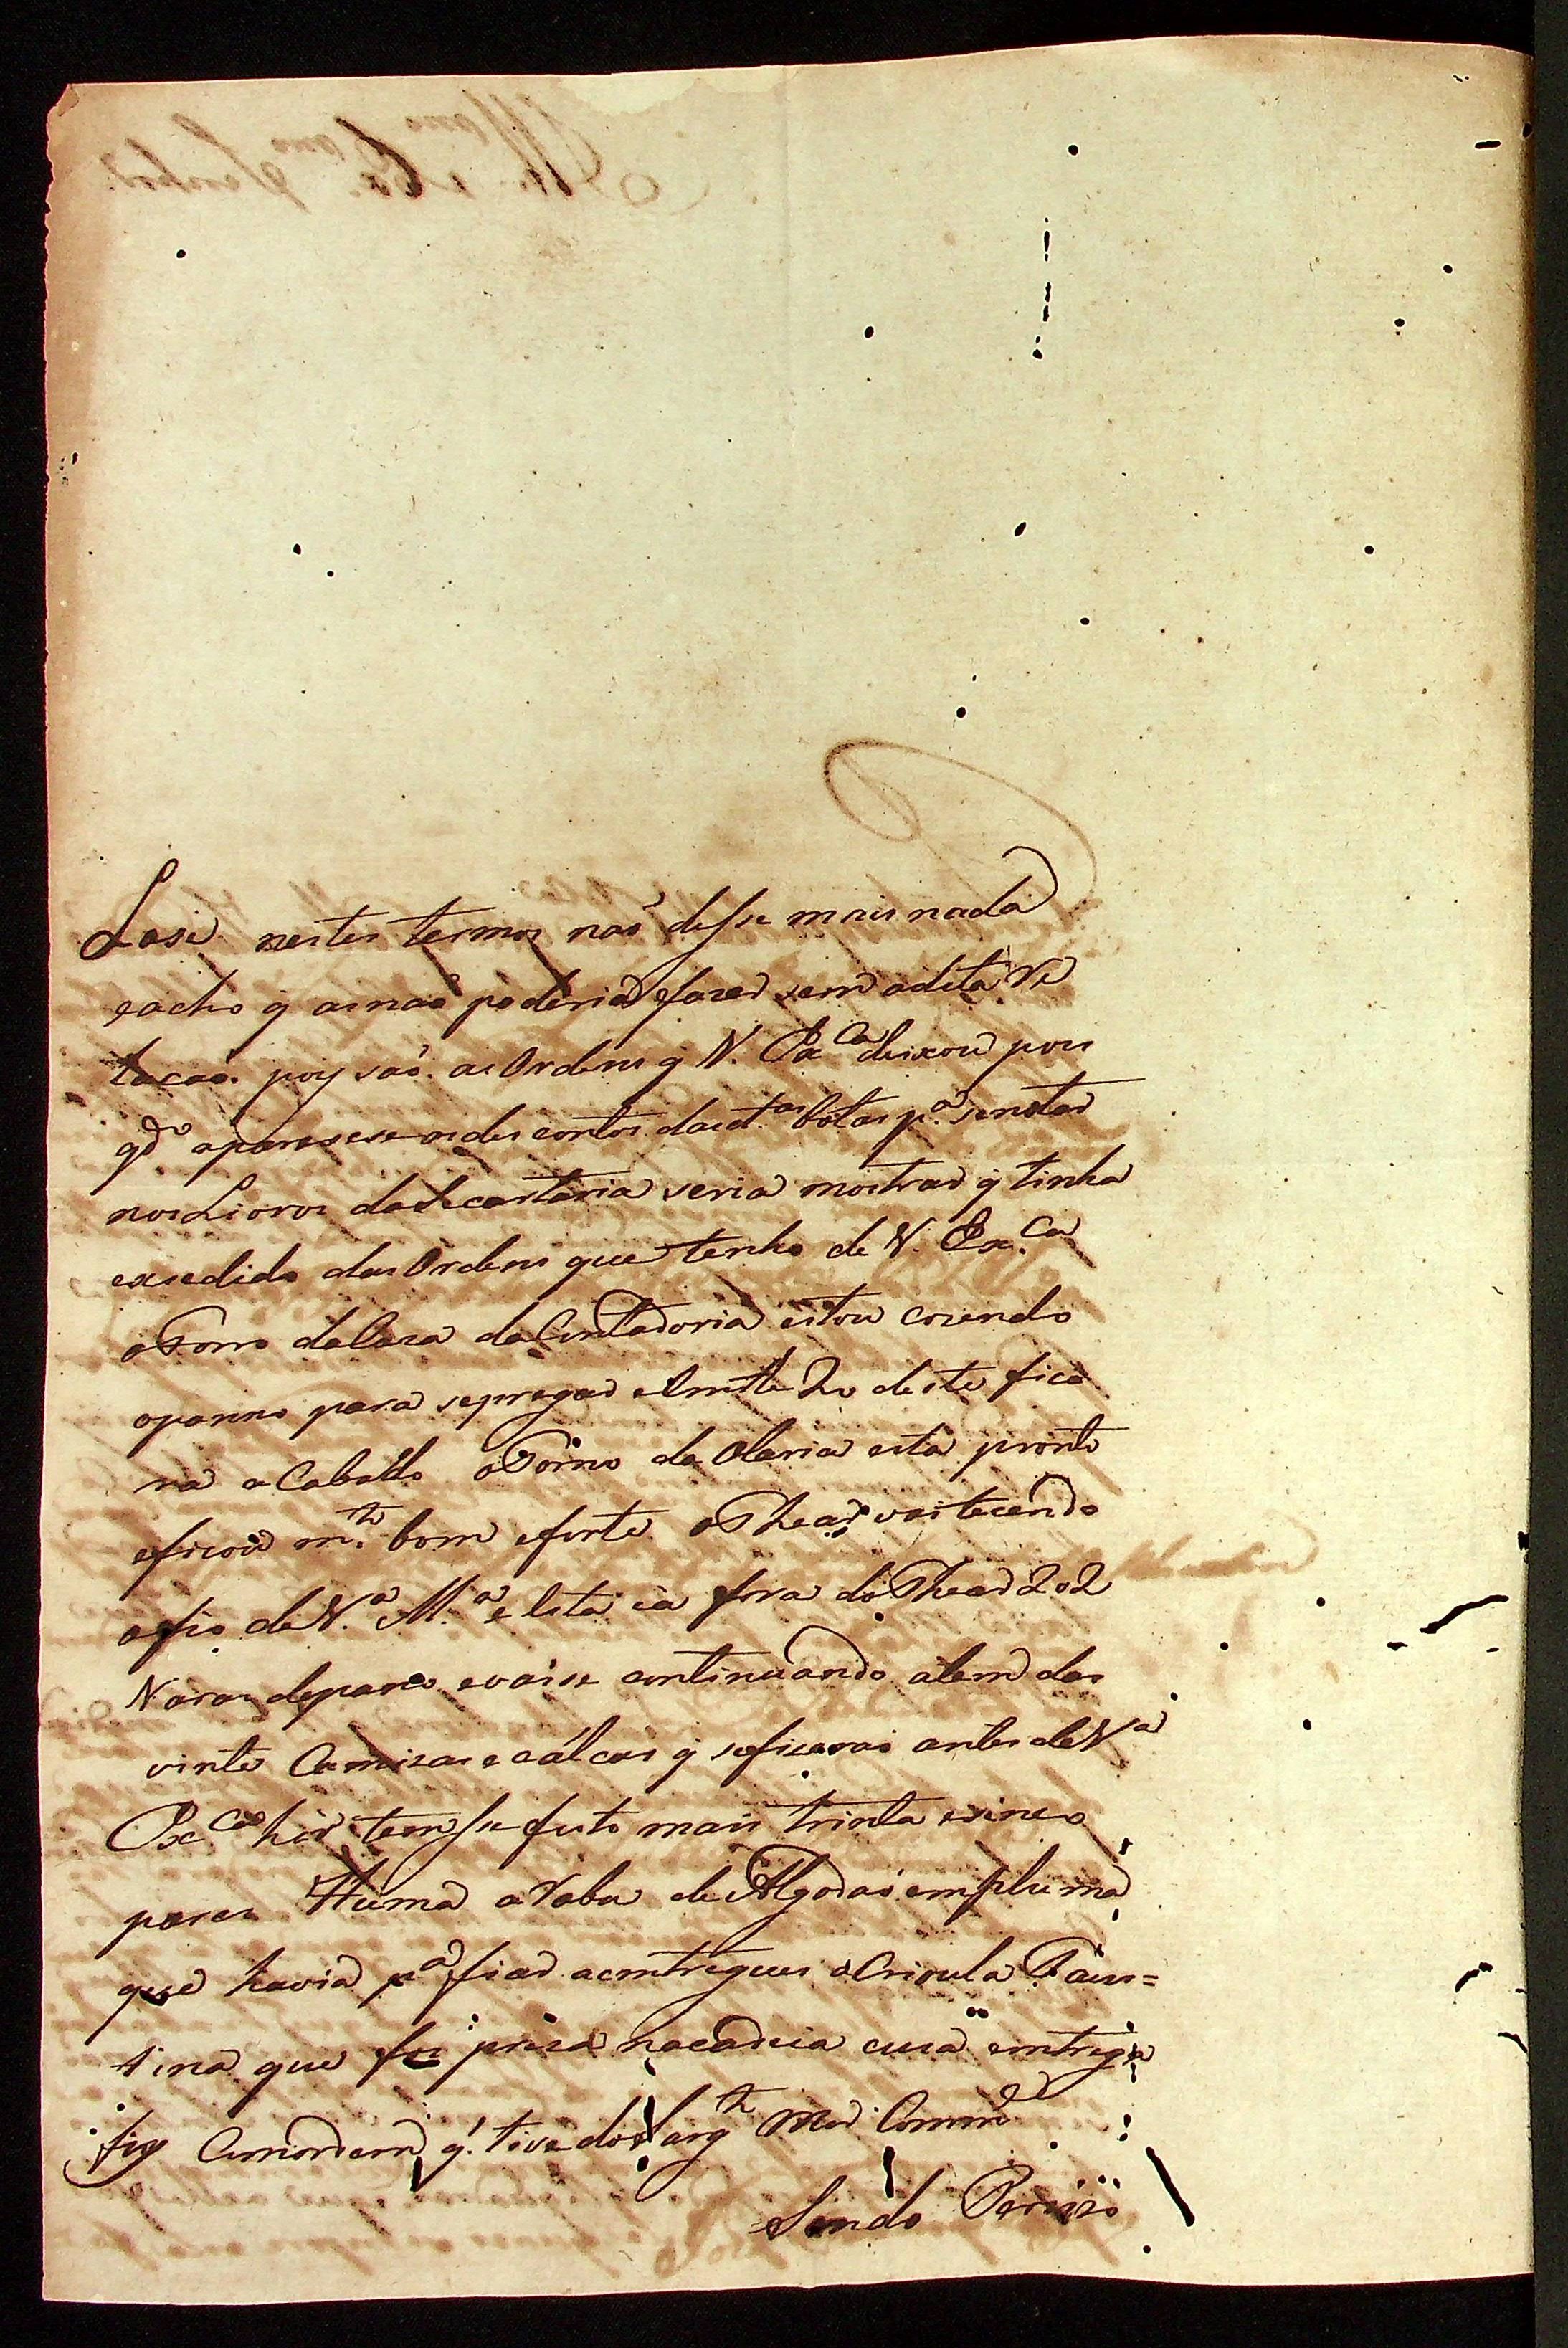 Lose nestes termos naõ desse mais nada
eacho q̃ asnaõ poderia fazer sem adita Re
lacaõ. poy saõ as Ordens q̃ V. Exca deixou pois
qdo aparesese osdescontos dasdtas botas pa senotar
nosLivros daSecartaria seria mostrar q̃ tinha
exsedido dasOrdens que tenho de V. Exca
oForro daCaza daContadoria estou cozendo
opanno para sepregar e the 20 deste fica
ra aCabado oForno da Olaria está pronto
eficou mto bom eforte oThear vai tecendo
ofio deV.a M.a e Está cá fora doThear 202
Varas depano evaise continuando alem das
vinte Camizas e calças q̃ seficeraõ antes deVa
Exca hir, temse feito mais trinta esinco
pares Huma aRoba de Algodaõ empluma
que havia pa fiar aentreguei aCrioula Faus=
tina que foi preza nacadeia cuja entrega
fiz Comordem q̃ tive do Sargto Mor Commde
Sendo Percizo